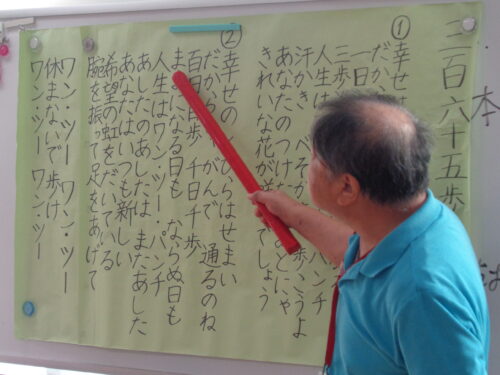 本
三百六十五歩
① 幸せ
だか
一日
三歩
人生は パンチ
汗かき べそか 歩こうよ
あなたのつけた あとにゃ
きれいな花が咲 でしょう
② 幸せの びらはせまい
だから がんで 通るのね
百日百歩 千日千歩
ま になる日も ならぬ日も
人生はワン・ツー・パンチ
あしたのあしたは またあした
あなたはいつも新しい
希望の虹をだいている
腕を振って足をあげて
ワン・ツー ワン・ツー
休まないで歩け
ワン・ツー ワン・ツー